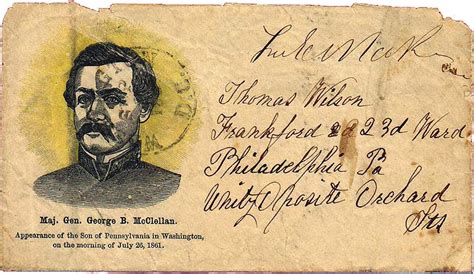 Thomas Wilson
Frankford Rd 23d Ward
Philadelphia Pa
Opposite Orchard
Maj. Gen. George B. McClellan.
Appearance of the Son of Pennsylvania in Washington,
on the morning of July 26, 1861.